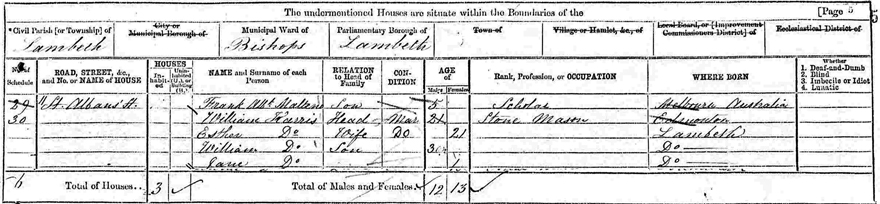 The undermentioned Houses are situate within the Boundaries of the [Page 5
*Civil Parish [or Township] of City or Municipal Borough of Municipal Ward of Parliamentary Borough of Town of Village or Hamlet, &c., of Local Board, or [Improvement Commissioners District] of Ecclesiastical District of
Lambeth Bishops Lambeth
No. of Schedule ROAD, STREET, &c., and No. or NAME of HOUSE HOUSES Inhabited Uninhabited (U.), or Building (B.) NAME and Surname of each Person RELATION to Head of Family CONDITION AGE of Males Females Rank, Profession, or OCCUPATION WHERE BORN Whether
1. Deaf-and-Dumb
2. Blind
3. Imbecile or Idiot
4. Lunatic
29 St Albans St Frank Son 5 Scholar Australia
30 William Harris Head Mar 21 Stone Mason
Esther Do Wife Do 21 Lambeth
William Do Son Do
Jane Do 1 Do
6 Total of Houses.. 3 Total of Males and Females.. 12 13